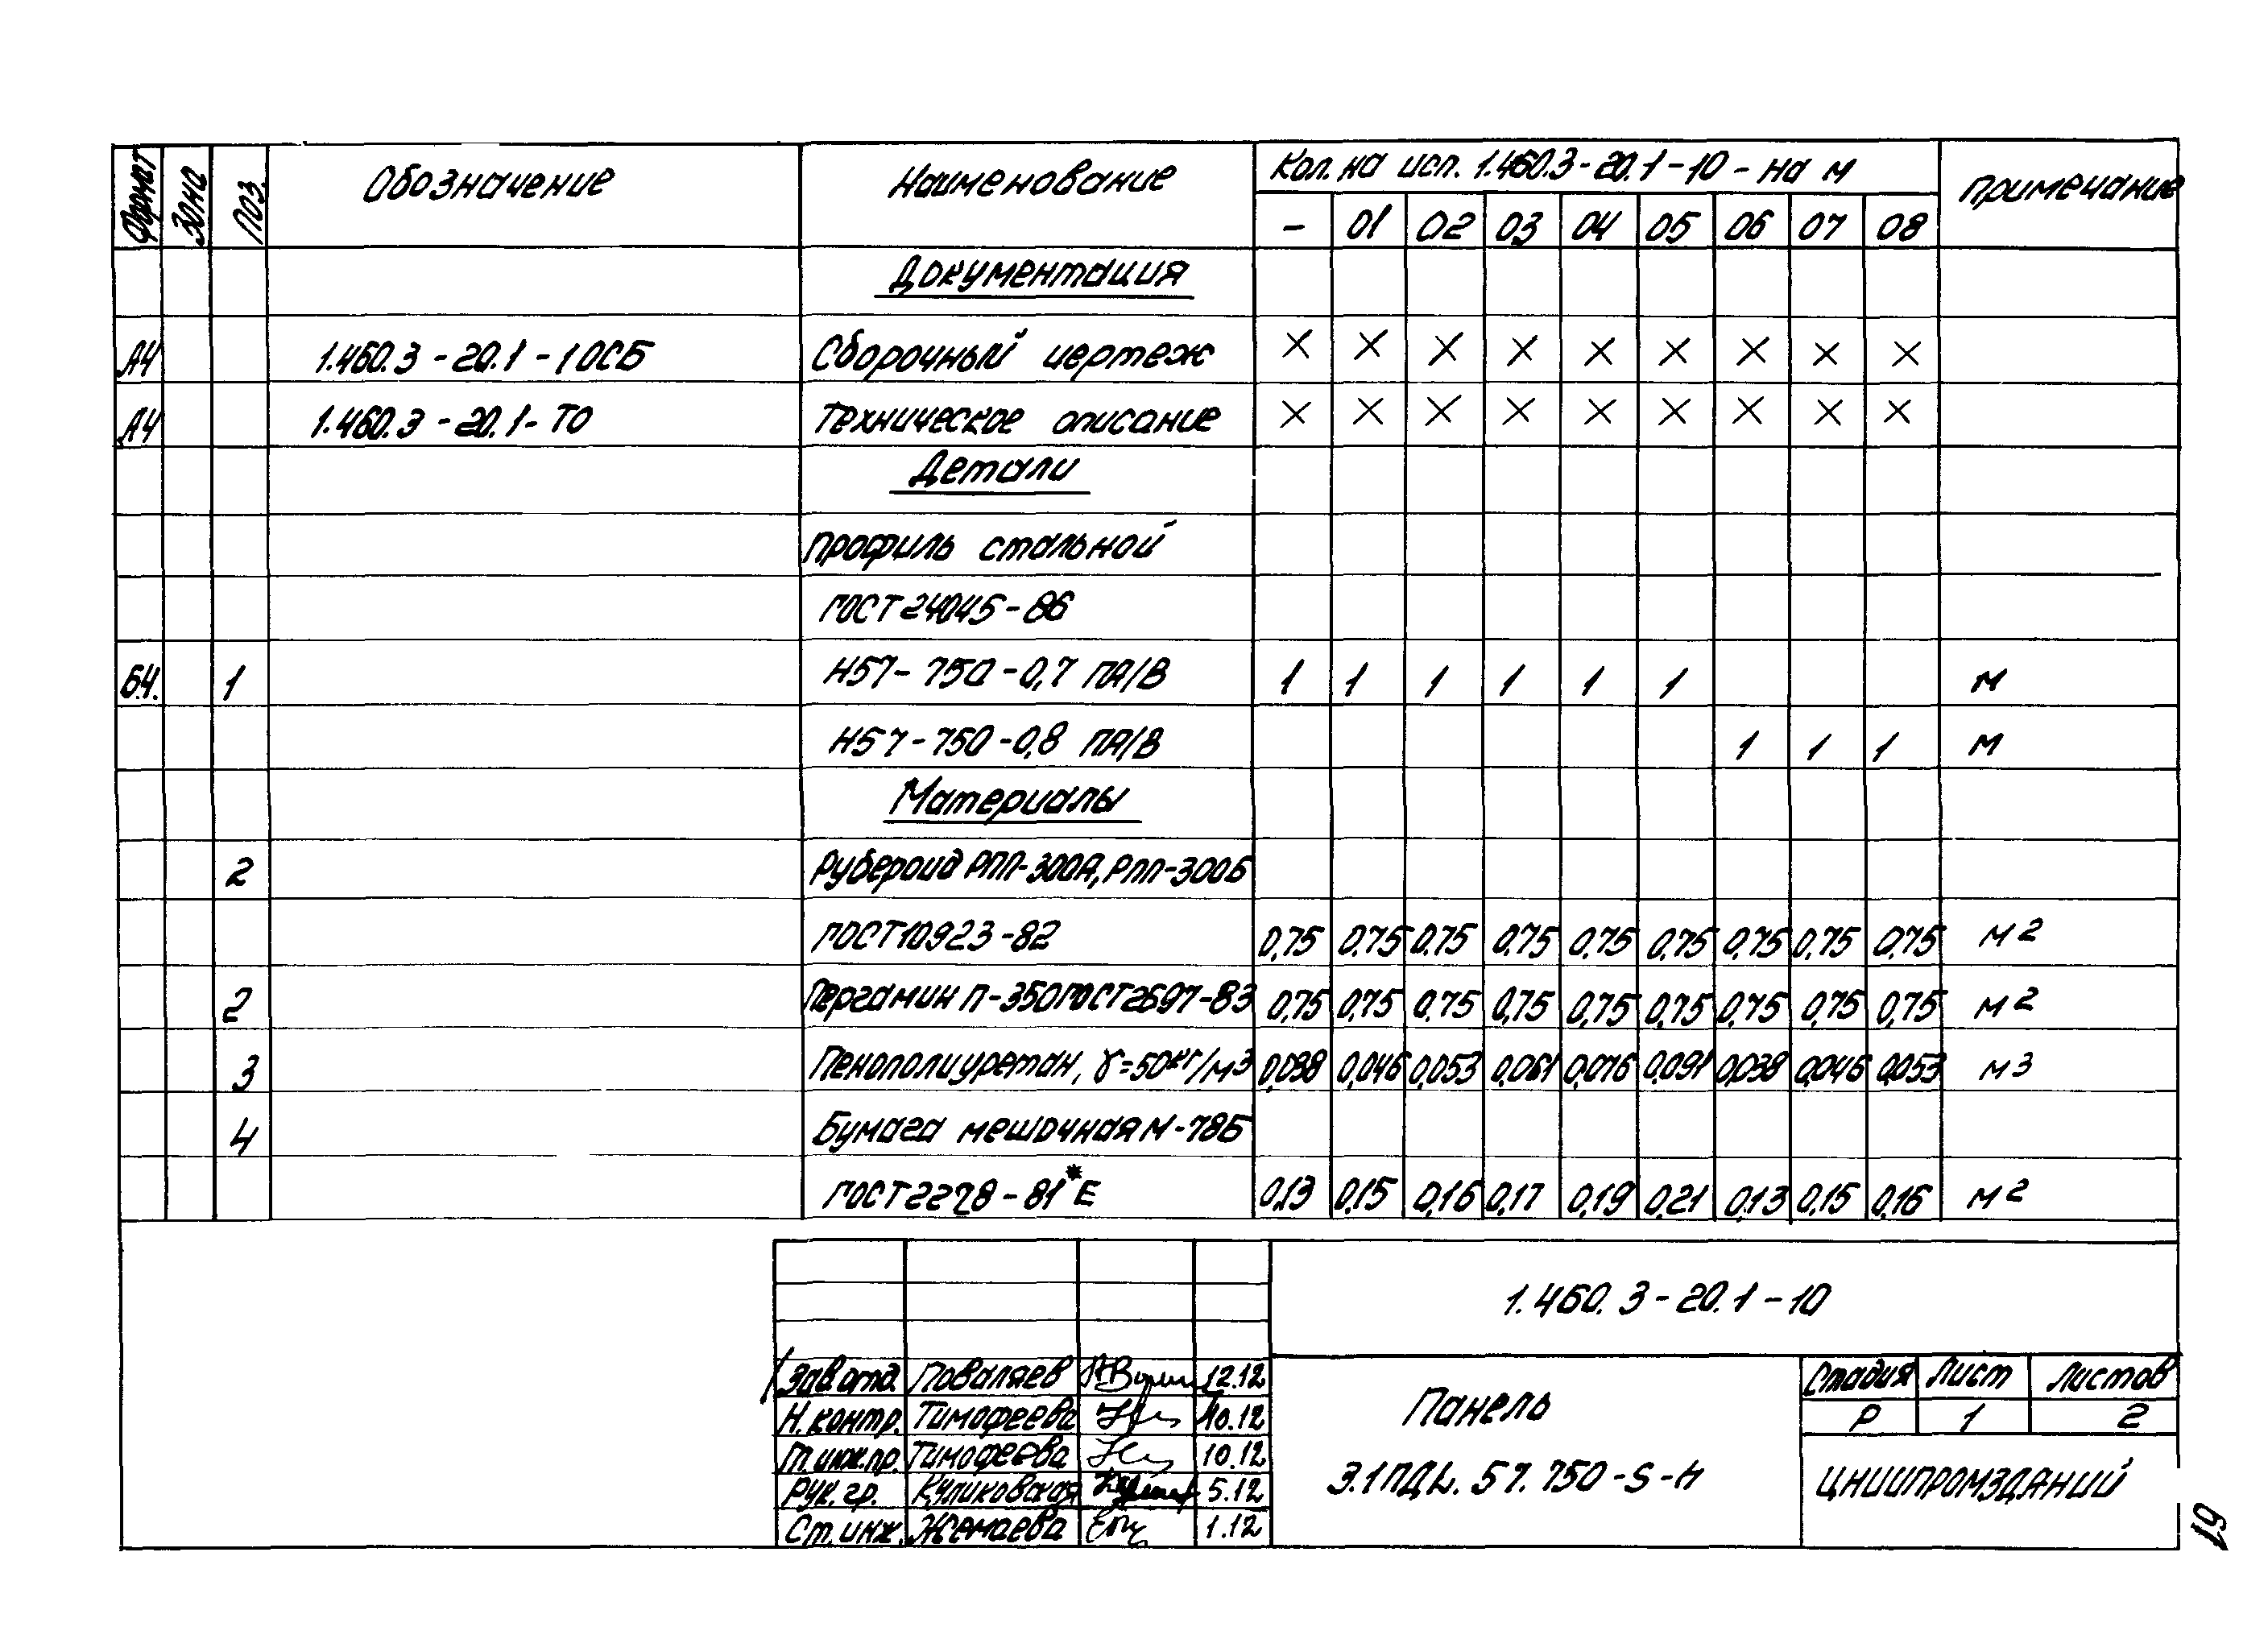 Формат Зона Поз. Обозначение Наименование Кол. на исп. 1.460.3-20.1-10 - на м Примечание
- 01 02 03 04 05 06 07 08
Документация
А4 1.460.3-20.1-10СБ Сборочный чертеж × × × × × × × × ×
А4 1.460.3-20.1-ТО Техническое описание × × × × × × × × ×
Детали
Профиль стальной
ГОСТ 24045-86
Б.Ч. 1 Н57-750-0,7 ПА/В 1 1 1 1 1 1 м
Н57-750-0,8 ПА/В 1 1 1 м
Материалы
2 Рубероид РПП-300А, РПП-300Б
ГОСТ 10923-82 0,75 0,75 0,75 0,75 0,75 0,75 0,75 0,75 0,75 м2
2 Пергамин П-350 ГОСТ 2697-83 0,75 0,75 0,75 0,75 0,75 0,75 0,75 0,75 0,75 м2
3 Пенополиуретан, γ=50кг/м3 0,038 0,046 0,053 0,061 0,076 0,091 0,038 0,046 0,053 м3
4 Бумага мешочная М-78Б
ГОСТ 2228-81*Е 0,13 0,15 0,16 0,17 0,19 0,21 0,13 0,15 0,16 м2
1.460.3-20.1-10
Зав.отд. Поваляев 12.12
Н.контр. Тимофеева 10.12
Гл.инж.пр. Тимофеева 10.12
Рук.гр. Куликовская 5.12
Ст.инж. Жемаева 1.12
Панель
3.1ПДL.57.750-S-h
Стадия Лист Листов
Р 1 2
ЦНИИПРОМЗДАНИЙ
19